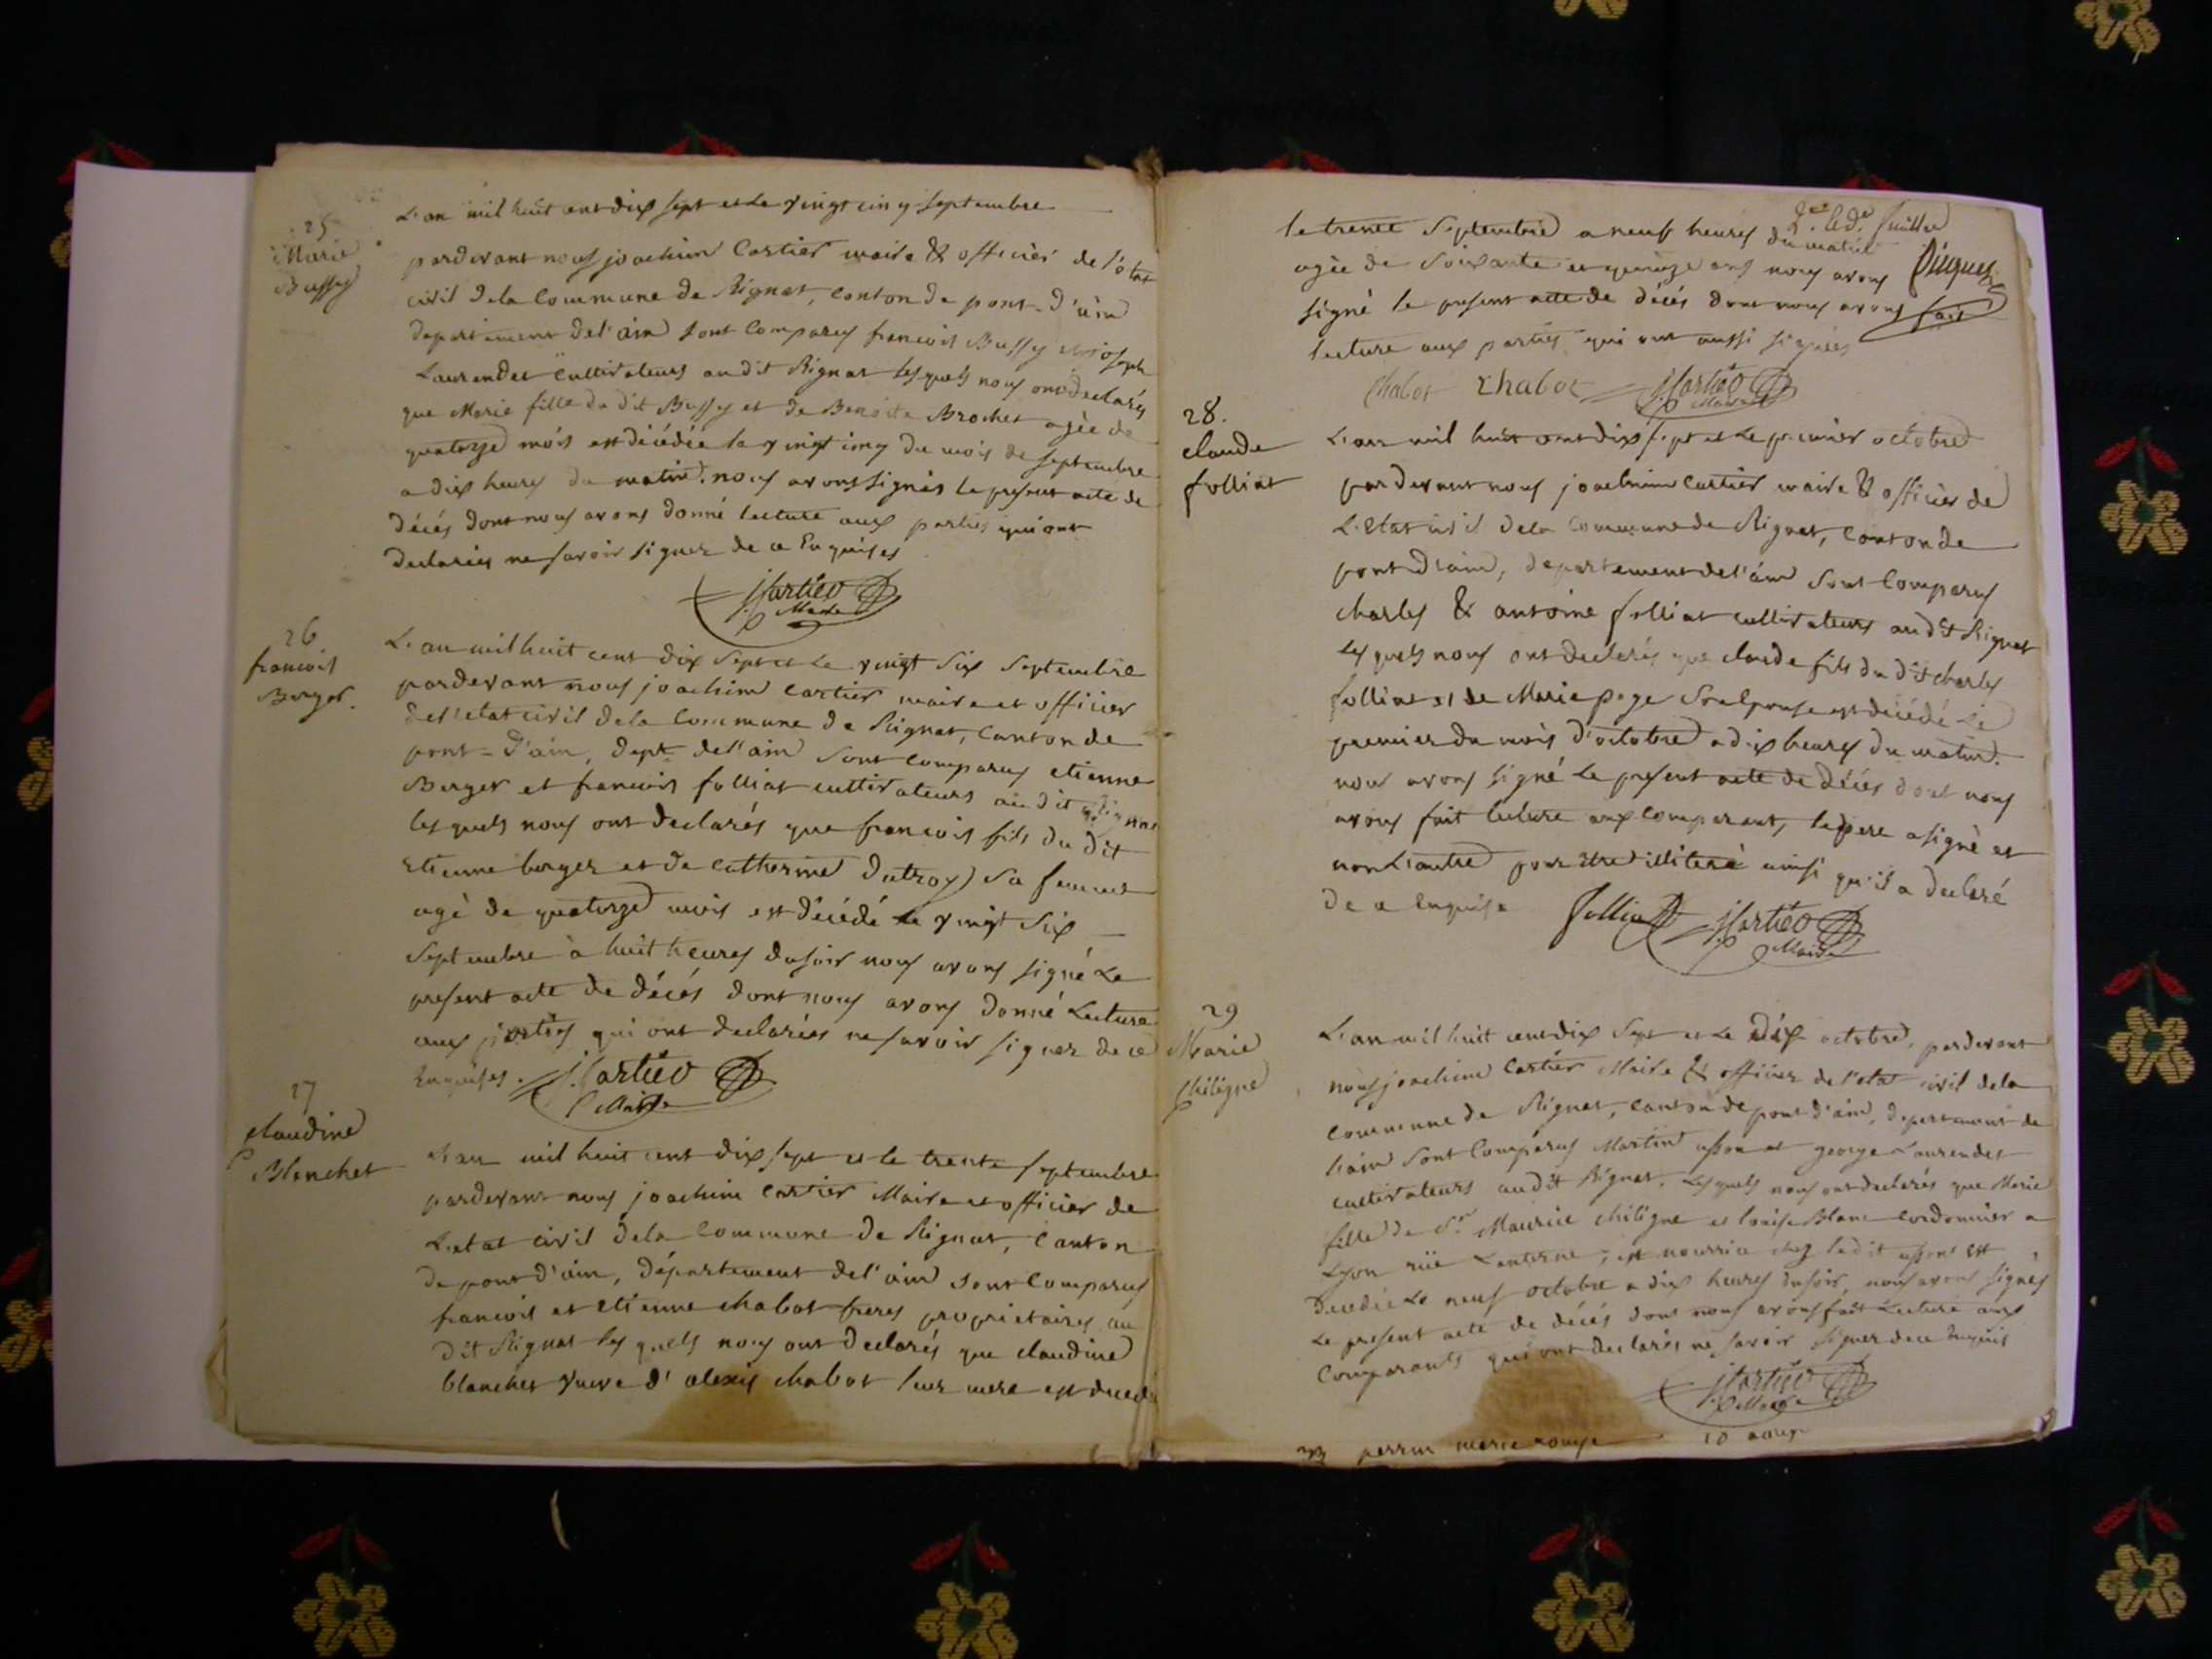 25
Marie
Bussy
L'an mil huit cent dix sept et le vingt cinq septembre
pardevant nous joachim Cartier maire & officier de l'etat
civil dela Commune de Rignat, canton de pont-d'ain
departement del'ain sont Comparus francois Bussy et joseph
Laurendet Cultivateurs au dit Rignat lesquels nous ont declarés
que Marie fille du dit Bussy et de Benoite Brochet agée de
quatorze mois est décédée le vingt cinq du mois de septembre
a dix heures du matin. nous avons signés le present acte de
décés dont nous avons donné lecture aux parties qui ont
declarées ne savoir signer de ce Enquises
J. Cartier
Maire
26
francois
Berger.
L'an mil huit cent dix sept et le vingt six septembre
pardevant nous joachim Cartier maire et officier
del'etat civil dela Commune de Rignat, Canton de
pont-d'ain, dept. del'ain sont comparus etienne
Berger et francois folliat cultivateurs au dit Rignat
lesquels nous ont declarés que francois fils du dit
Etienne berger et de Catherine Dutroy sa femme
agé de quatorze mois est décédé le vingt six
Septembre à huit heures dusoir nous avons signé Le
present acte de décés dont nous avons donné Lecture
aux parties qui ont declarées ne savoir signer de ce
Enquises. J. Cartier
Maire
27
claudine
Blanchet
L'an mil huit cent dix sept et le trente septembre
pardevant nous joachim Cartier Maire et officier de
L'etat civil dela Commune de Rignat, Canton
de pont d'ain, département del'ain sont Comparus
francois et Etienne chabot freres proprietaires au
dit Rignat les quels nous ont declarés que claudine
blanchet veuve d'alexis chabot leur mere est decedée
2.e et d.e feuillet
le trente septembre a neuf heures du matin
agée de soixante et quinze ans nous avons
signé le present acte de décés dont nous avons fait
lecture aux parties qui ont aussi signées
chabot Chabot J. Cartier
Maire
28.
claude
folliat
L'an mil huit cent dix sept et Le premier octobre
pardevant nous joachim Cartier maire & officier de
L'Etat civil dela Commune de Rignat, Canton de
pont d'ain, departement del'ain sont Comparus
charles & antoine folliat cultivateurs au dit Rignat
lesquels nous ont declarés que claude fils du dit charles
folliat et de Marie page son Epouse est décédé Le
premier du mois d'octobre a dix heures du matin.
nous avons signé le present acte de décés dont nous
avons fait lecture aux comparant, le pere a signé et
non L'autre pour Etre illiteré ainsi qu'il a declaré
de ce Enquise folliat J. Cartier
Maire
29
Marie
Chiligne
L'an mil huit cent dix sept et Le Dix octobre, pardevant
nous joachim Cartier Maire & officier de l'etat civil dela
commune de Rignat, canton de pont d'ain, departement de
l'ain sont Comparus Martin et george Laurendet
cultivateurs audit Rignat. Lesquels nous ont declarés que Marie
fille de Sr. Maurice chiligne et louise Blanc Cordonnier a
Lyon rüe Lanterne, en nourrice chez ledit est
Decedée Le neuf octobre a dix heures dusoir, nous avons signés
Le present acte de décés dont nous avons fait Lecture aux
Comparants qui ont declarés ne savoir signer de ce Enquis
J. Cartier
Maire